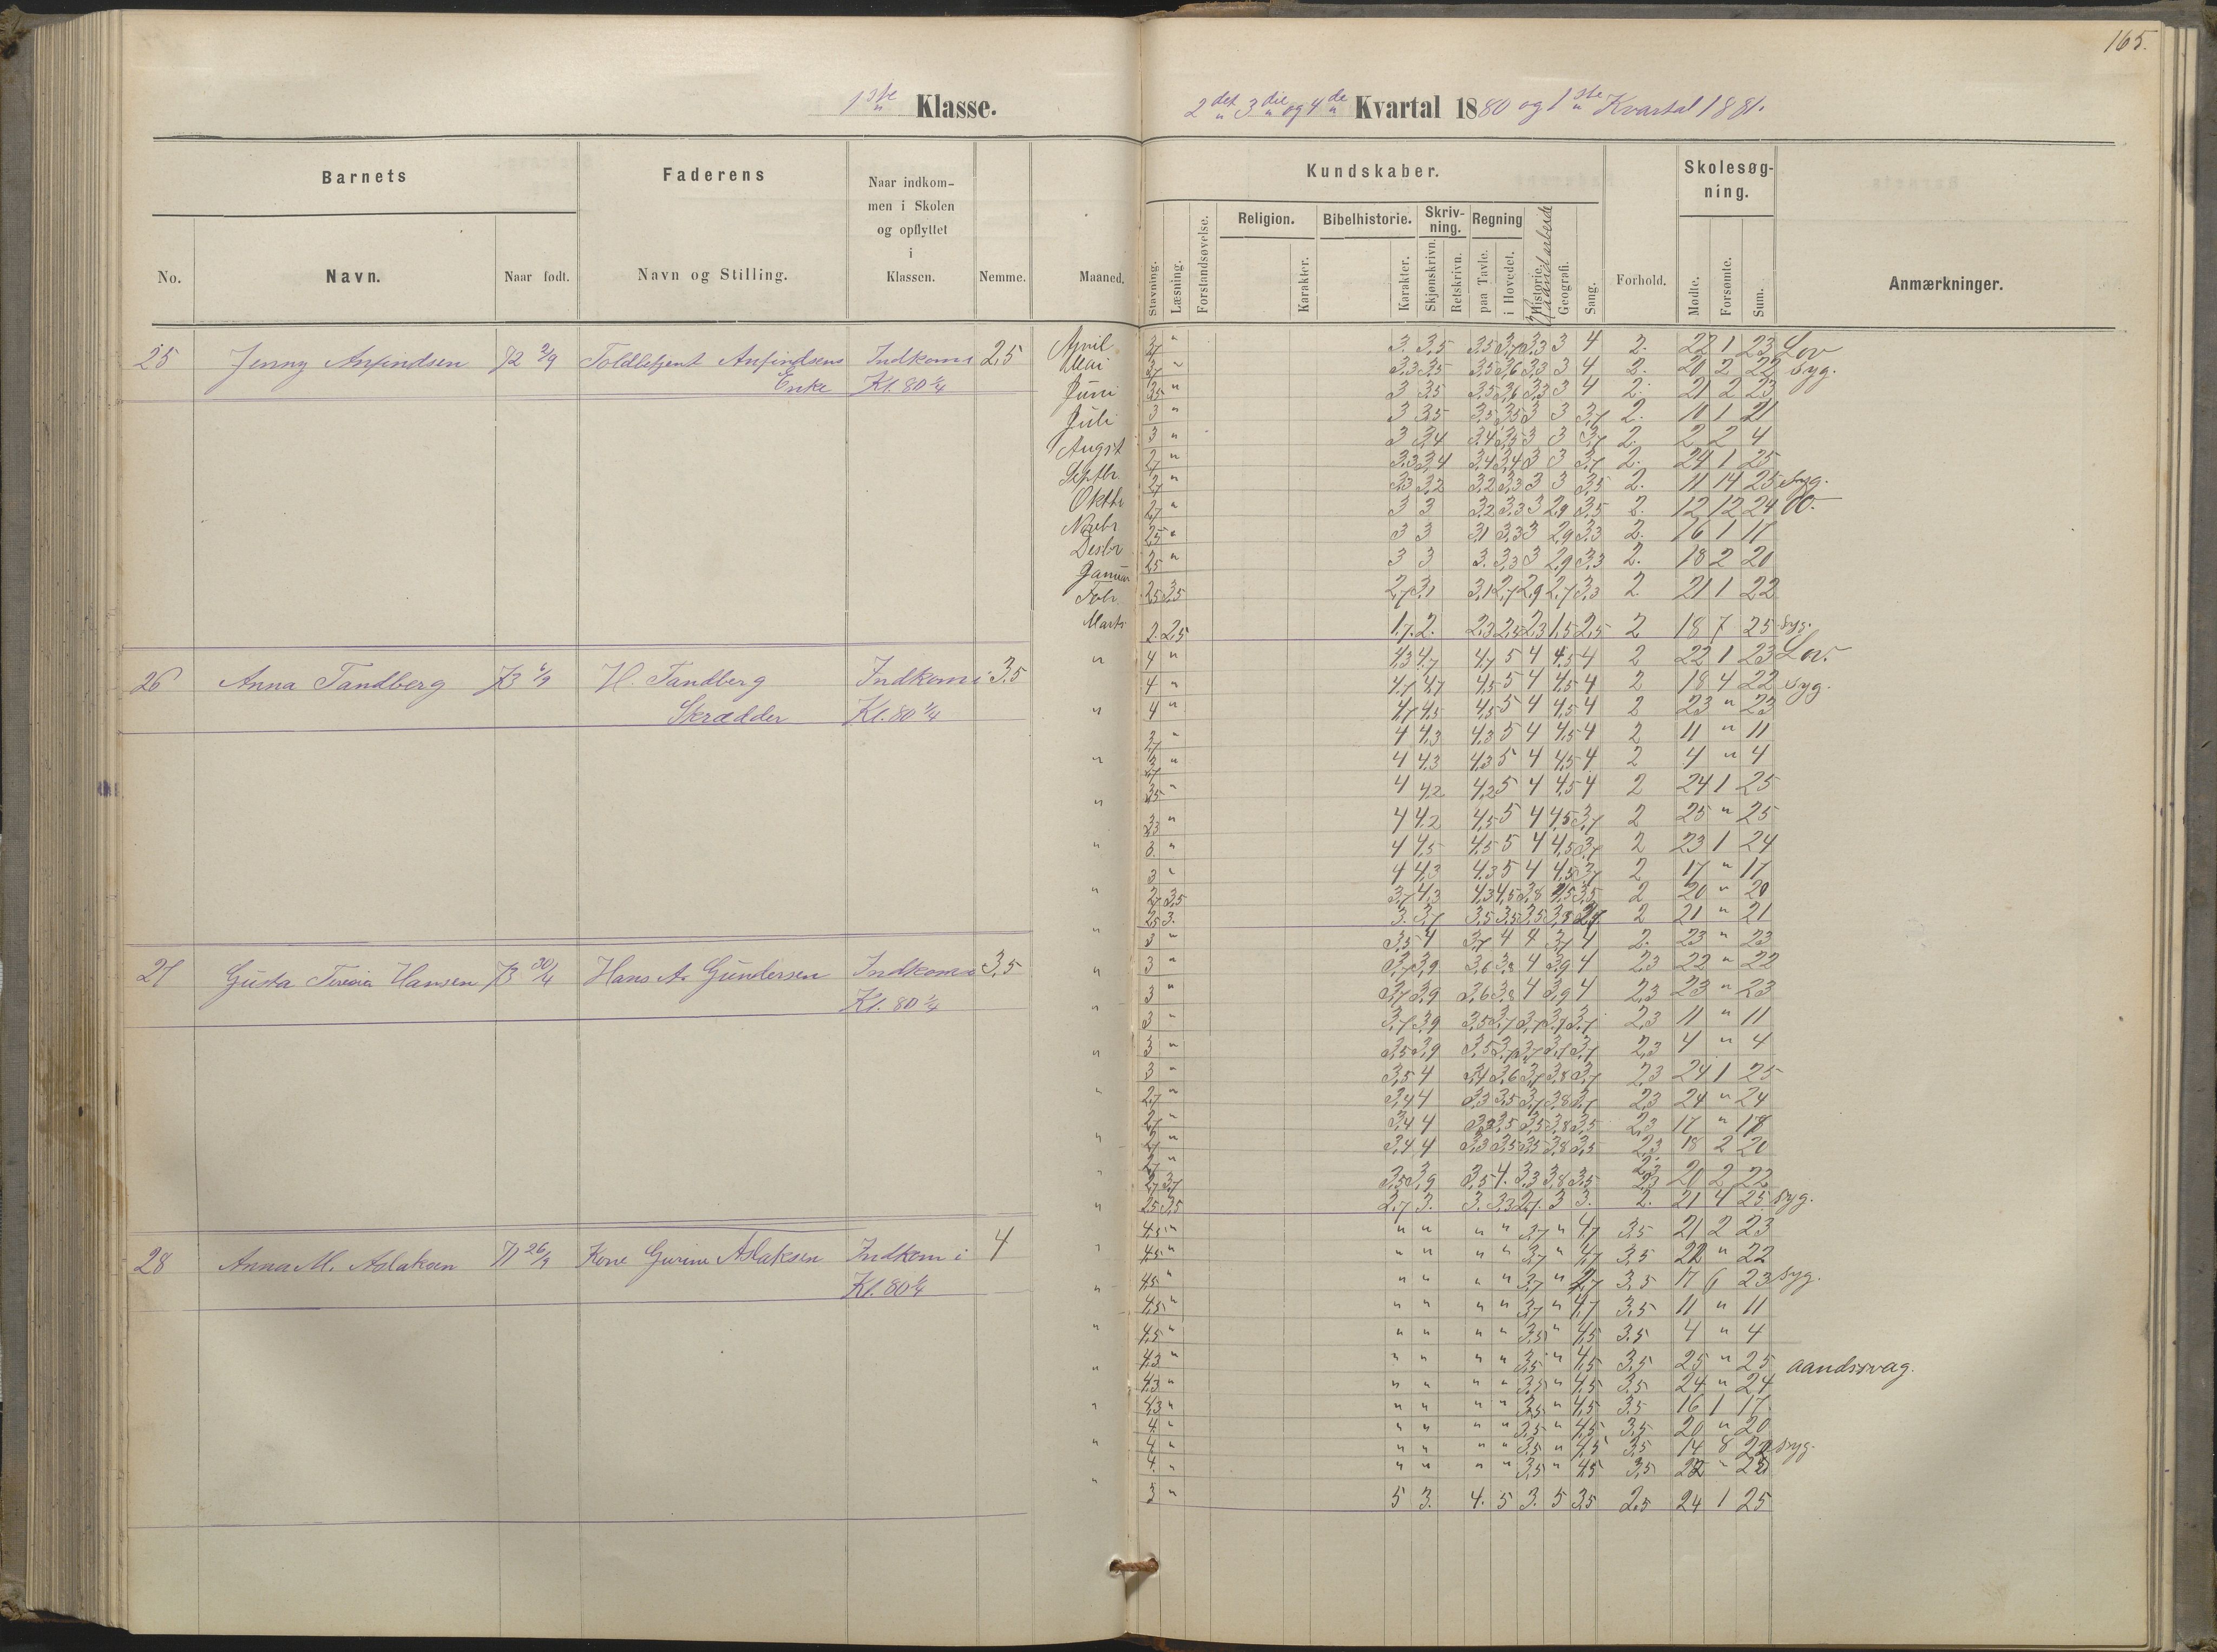 165.
1ste Klasse.
2det 3die og 4de Kvartal 1880 og 1ste Kvartal 1881.
Barnets
Faderens
Naar indkom-
men i Skolen
og opflyttet
i
Klassen.
Nemme.
Maaned.
No.
Navn.
Naar født.
Navn og Stilling.
Kundskaber.
Skolesøg-
ning.
Stavning.
Læsning.
Forstandsøvelse.
Religion.
Karakter.
Bibelhistorie.
Karakter.
Skriv-
ning.
Skjønskrivn.
Retskrivn.
Regning
paa Tavle.
i Hovedet.
Historie.
Haandarbeide
Geografi.
Sang.
Forhold.
Mødte.
Forsømte.
Sum.
Anmærkninger.
25 Jenny Anfindsen 72 2/9 Toldbetjent Anfindsens Indkom i 2,5
Enke Kl. 80 1/4
April 3. 3,5 4 2. 22 1 23 Lov
Mai 3,3 3,5 3 4 2. 20 2 22 Syg.
Juni 3 3,5 3 4 2. 21 2 23
Juli 3 3,5 3 3,7 2.
Augst 3 3,4 3 3,7 2. 2 2 4
Septbr 3,3 3,4 3 3 3,7 2. 24 1 25
Oktbr 3,3 3,2 3,2 3,3 3 3 3,5 2. 11 14 25 Syg.
Novbr 3 3 3,2 3,3 3 2,9 3,5 2. 12 12 24
Desbr 3 3 3,1 3,3 3 2,9 3,3 2. 16 1 17
Januar 3 3 3. 3,3 3 2,9 3,3 2. 18 2 20
Febr. 2,5 3,5 2,7 3,1 3,1 2,7 2,9 2,7 3,3 2 21 1 22
Marts 2. 2,5 1,7. 2. 2,3 2,4 2,3 1,5 2,5 2 18 7 25 Syg.
26 Anna Tandberg 73 H. Tandberg Indkom i 3,5
Skrædder Kl. 80 1/4
4 " 4,3 4,7 4,7 5 4 4,5 4 2 22 1 23 Lov.
4 " 4,7 4,7 4,5 5 4 4,5 4 2 18 4 22 Syg.
4 " 4,7 4,5 4,5 5 4 4,5 4 2 23 " 23
3,7 " 4 4,3 4,3 5 4 4,5 4 2 11 " 11
3,7 " 4 4,3 4,3 5 4 4,5 4 2 4 " 4
3,5 " 4 4,2 4,2 5 4 4,5 4 2 24 1 25
3,3 " 4 4,2 4,5 5 4 4,5 3,7 2 25 " 25
3. " 4 4,5 4,5 5 4 4,5 3,7 2 23 1 24
3 " 4 4,3 4,3 5 4 4,5 3,7 2 17 " 17
2,7 3,5 3,7 4,3 4,3 4,5 3,8 4,5 3,5 2 20 " 20
2,5 3. 3. 3,7 3,5 3,5 3,5 3,8 2,7 2 21 " 21
27 Gusta Teresia Hansen 73 30/4 Hans A. Gundersen Indkom i 3,5
Kl. 80 1/4
3 " 3,5 4 3,7 4 4 3,7 4 2. 23 " 23
3 " 3,7 3,9 3,6 3,8 4 3,9 4 2,3 22 " 22
3 " 3,7 3,9 3,6 3,8 4 3,9 4 2,3 23 " 23
3 " 3,7 3,9 3,5 3,7 3,7 3,7 3,7 2,3 11 " 11
3 " 3,5 3,9 3,5 3,7 3,7 3,7 3,7 2,3 4 " 4
3 " 3,5 4 3,4 3,6 3,7 3,8 3,7 2,3 24 1 25
2,7 " 3,4 4 3,3 3,5 3,7 3,8 3,7 2,3 24 " 24
2,7 " 3,4 4 3,5 3,5 3,8 3,5 2,3 17 "
2,7 " 3,4 4 3,3 3,5 3,5 3,8 3,5 2,3 18 2 20
2,7 " 2,3
2,7 3,7 3,5 3,9 3,5 4. 3,3 3,8 3,5 2,3 20 2 22
2,5 3,5 2,7 3. 3. 3,3 2,7. 3 3. 2. 21 4 25 Syg.
28 Anna M. Aslaksen 71 26/9 Kone Gurine Aslaksen Indkom i 4
Kl. 80 1/4
4,5 " " " " " 3,7 " 4,7 3,5 21 2 23
4,5 " " " " " 3,7 " 4,7 3,5 22 " 22
4,5 " " " " " 3,7 " 4,7 3,5 17 6 23 Syg.
4,5 " " " " " 3,7 " 4,7 3,5 11 " 11
4,5 " " " " " 3,5 " 4,5 3,5 4 " 4
4,3 " " " " " 3,5 " 4,5 3,5 25 " 25 aandssvag.
4,3 " " " " " 3,5 " 4,5 3,5 24 " 24
4,3 " " " " " 3,5 " 4,5 3,5 16 1 17
4 " " " " " 3,5 " 4,5 3,5 20 " 20
4 " " " " " 3,5 " 4,5 3,5 14 8 22 Syg.
4. " " " " " 3,5 " 4,5 3,5 22 "
3 " 5 3. 4. 5 3. 5 3,5 2,5 24 1 25